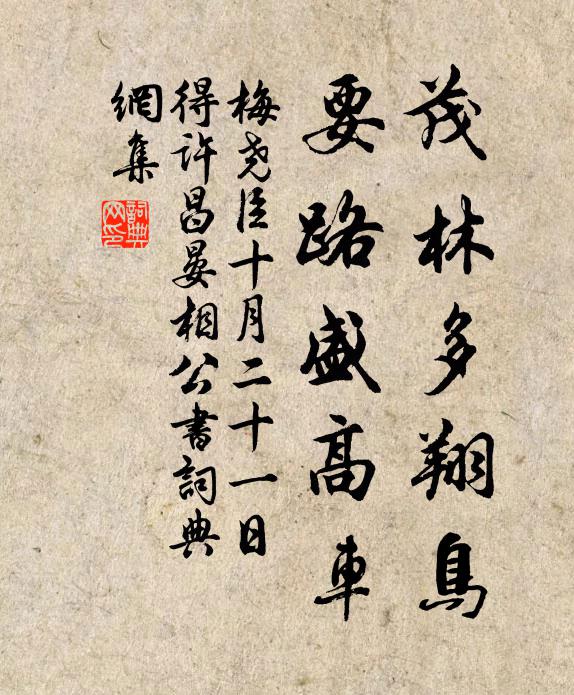 茂林多翔鳥
要路盛高車
梅堯臣十月二十一日
得許昌晏相公書詞典
網集
詞典
网印